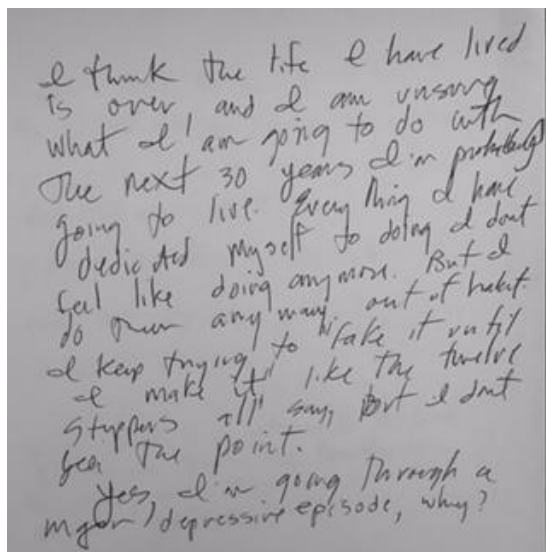 I think the life I have lived
is over, and I am unsure
what I am going to do with
the next 30 years I'm probably
going to live. Everything I have
dedicated myself to doing I dont
feel like doing anymore. But I
do them anyway, out of habit.
I keep trying to "fake it until
I make it" like the twelve
steppers all say, but I dont
see the point.
Yes, I'm going through a
major depressive episode, why?